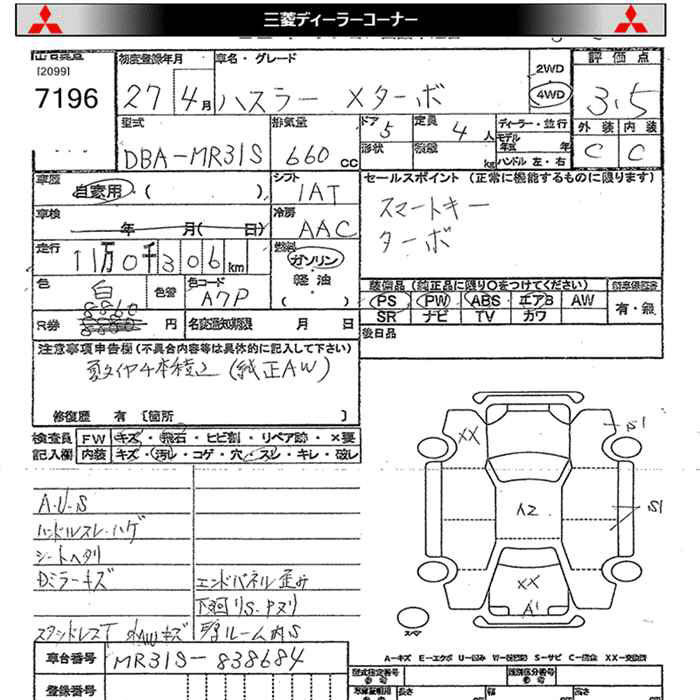 三菱ディーラーコーナー
[2099]
7196
初度登録年月
27 4月
車名・グレード
ハスラー Xターボ
2WD
4WD
評価点
3.5
外装 内装
C C
型式
DBA-MR31S
排気量
660 cc
ドア 5
定員 4 人
形状
積載 kg
ディーラー・並行
モデル年式 年
ハンドル 左・右
車歴
自家用 ( )
シフト
IAT
車検
年 月( 日)
冷房
AAC
走行
11万0千306km
燃料
ガソリン
軽油
( )
色
白
色替
色コード
A7P
R券
8860
円
名変通知期限 月 日
セールスポイント (正常に機能するものに限ります)
スマートキー
ターボ
装備品 (純正品に限り○をつけてください)
PS PW ABS エアB AW
SR ナビ TV カワ
有・無
後日品
注意事項申告欄 (不具合内容等は具体的に記入して下さい)
夏タイヤ4本積込 (純正AW)
修復歴 有 [箇所 ]
検査員記入欄
FW キズ・飛石・ヒビ割・リペア跡・×要
内装 キズ・汚れ・コゲ・穴・スレ・キレ・破レ
A・U・S
ハンドルスレ・ハゲ
シートヘタリ
Dミラーキズ
エンドパネル歪み
下廻りS・クヌリ
スタッドレスT 社外AWキズ
ルーム内S
車台番号
MR31S-838684
登録番号
XX
S1
A2
S1
XX
A1
スペア
A-キズ E-エクボ U-凹み W-板金波 S-サビ C-腐食 XX-交換済
型式指定番号
類別区分番号
長さ
幅
高さ